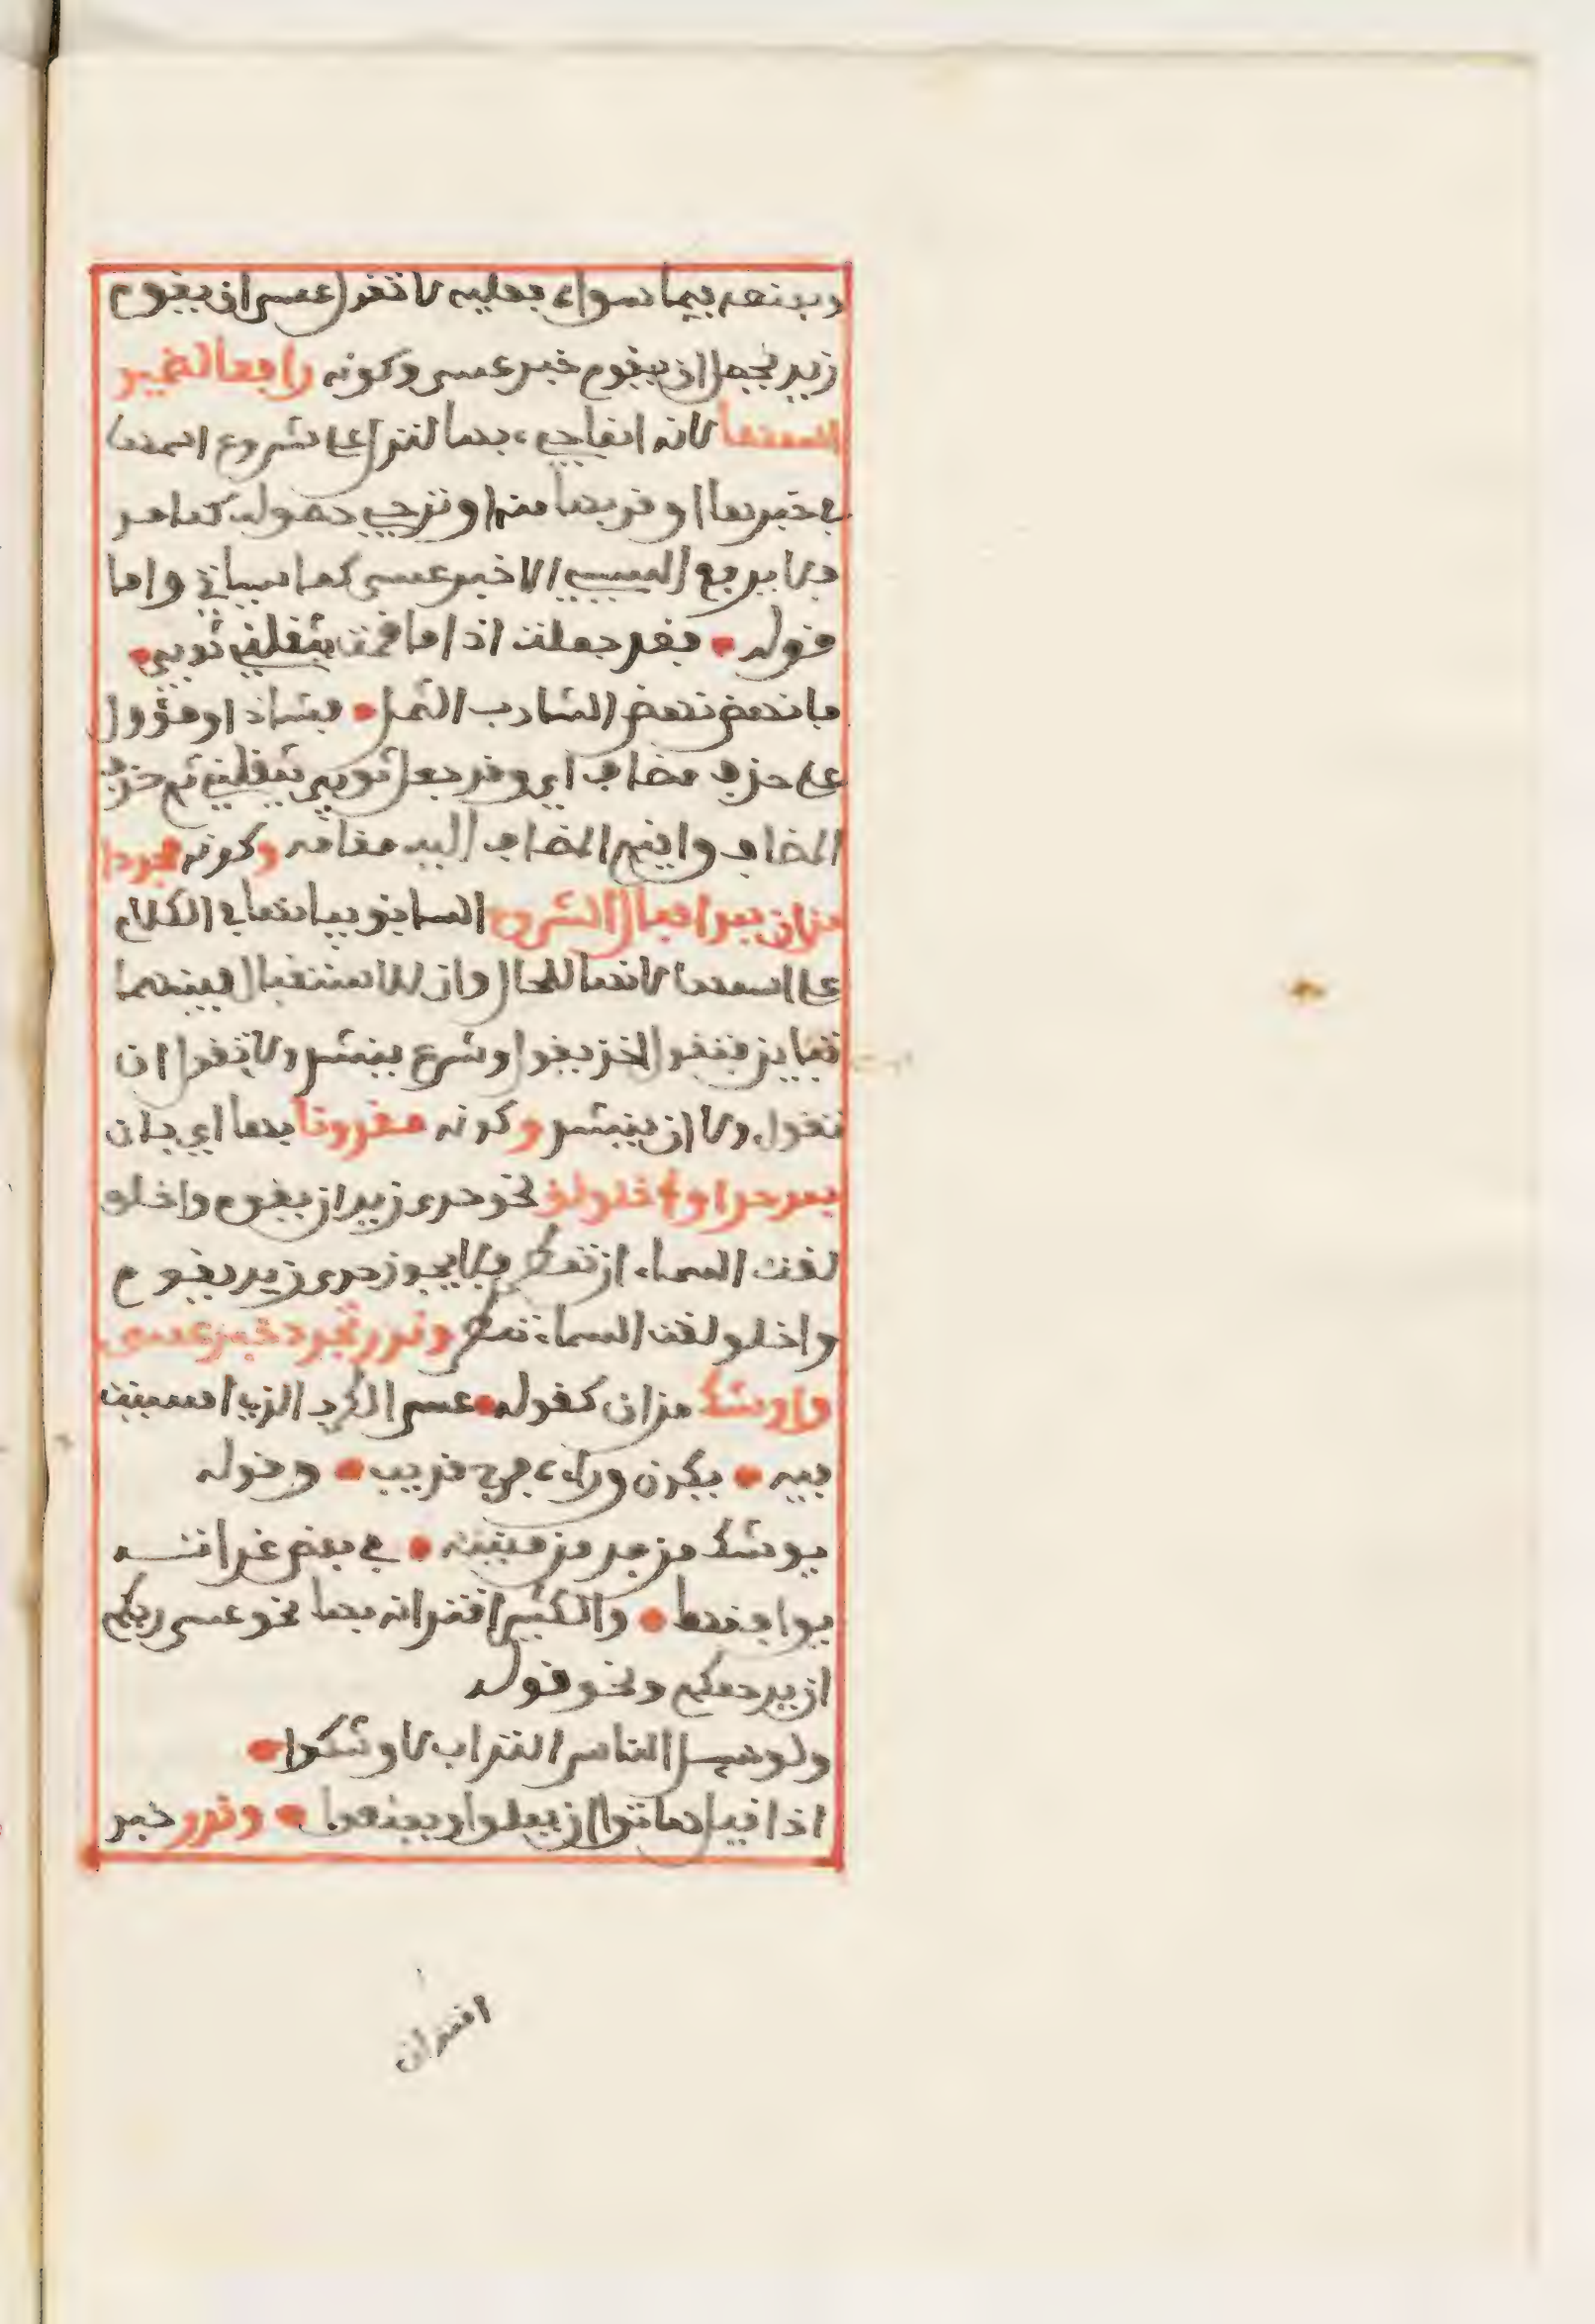 ويمنعه فيما سواه فعليه لا تقول عسى ان يقوم
زيد بجعل ان يقوم خبر عسى وكونه رافعا لضمير
اسمها لانه انما جيء بها لتدل على شروع اسمها
في خبرها او قربها منه او ترجي حصوله كما مر
فلا يرفع السببي الا خبر عسى كما سياتي واما
قوله • فقد جعلت اذا ما قمت يثقلني ثوبي •
فانهض نهض الشارب الثمل • فشاذ او مؤول
على حذف مضاف اي وقد جعل ثوبي يثقلني ثم حذف
المضاف واقيم المضاف اليه مقامه وكونه مجردا
من ان بعد افعال الشروع السابق بيانها في الكلام
على اسمها لانها للحال وان للاستقبال فبينهما
تمايز فتقول اخذ يقول وشرع ينشد ولا تقول ان
تقول ولا ان ينشد وكونه مقرونا بها اي بان
بعد حرا واخلولق نحو حرى زيد ان يقوم واخلو
لقت السماء ان تمطر فلا يجوز حرى زيد يقوم
واخلولقت السماء تمطر وندر تجرد خبر عسى
واوشك من ان كقوله • عسى الكرب الذي امسيت
فيه • يكون وراءه فرج قريب • وقوله
يوشك من فر من منيته • في بعض غراته
يوافقها • والكثير اقترانه بها نحو عسى ربكم
ان يرحمكم ونحو قوله
ولو سيل الناس التراب لاوشكوا •
اذا قيل هاتوا ان يملوا ويمنعوا • وندر خبر
اقتران